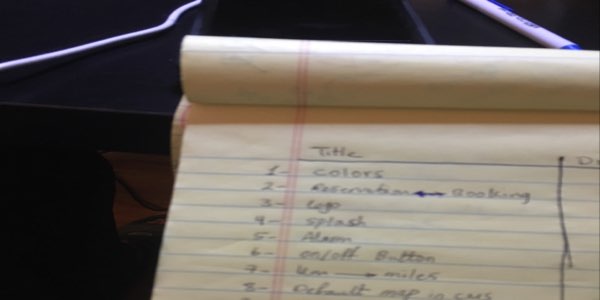 Title
1- colors
2- Reservation ← Booking
3- logo
4- splash
5- Alarm
6- on/off Button
7- km → miles
8- Default map in cars